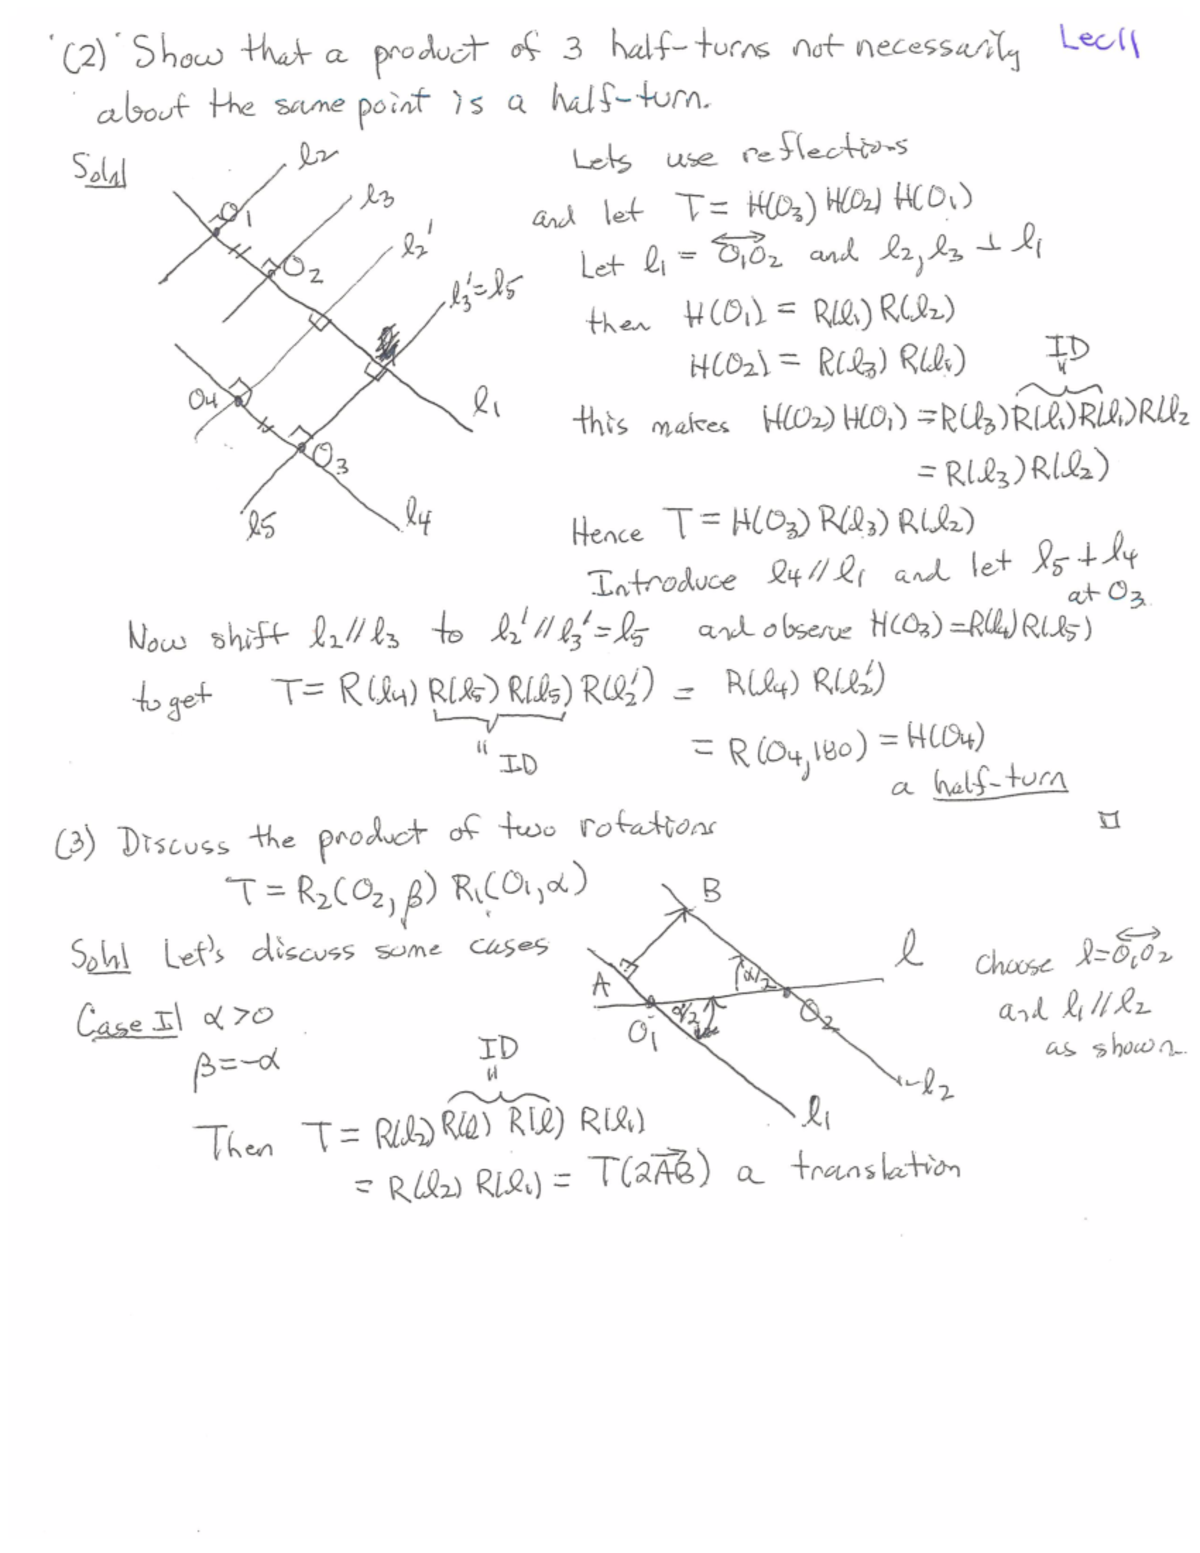 (2) Show that a product of 3 half-turns not necessarily Lec11
about the same point is a half-turn.
Soln
l2
l3
l2'
l3'=l5
O1
O2
O4
O3
l1
l5
l4
Lets use reflections
and let T = H(O3) H(O2) H(O1)
Let l1 = O1O2 and l2, l3 ⊥ l1
then H(O1) = R(l1) R(l2)
H(O2) = R(l3) R(l1)
ID
"
this makes H(O2) H(O1) = R(l3) R(l1) R(l1) R(l2
= R(l3) R(l2)
Hence T = H(O3) R(l3) R(l2)
Introduce l4 // l1 and let l5 ⊥ l4
at O3.
Now shift l2 // l3 to l2' // l3' = l5 and observe H(O3) = R(l4) R(l5)
to get T = R(l4) R(l5) R(l5) R(l2') = R(l4) R(l2')
" ID
= R(O4, 180) = H(O4)
a half-turn
□
(3) Discuss the product of two rotations
T = R2(O2, β) R1(O1, α)
Soln Let's discuss some cases
B
A
α/2
α/2
O1
O2
l
l2
l1
choose l = O1O2
and l1 // l2
as shown.
Case I α > 0
β = -α
ID
"
Then T = R(l2) R(l) R(l) R(l1)
= R(l2) R(l1) = T(2AB) a translation